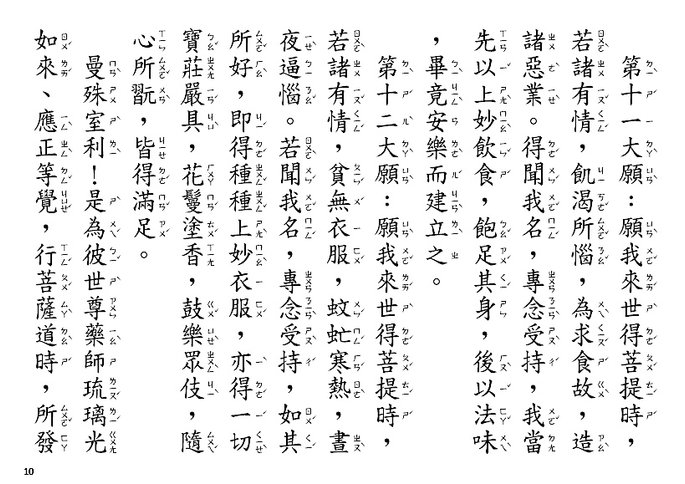 第十一大願：願我來世得菩提時，
若諸有情，飢渴所惱，為求食故，造
諸惡業。得聞我名，專念受持，我當
先以上妙飲食，飽足其身，後以法味
，畢竟安樂而建立之。
第十二大願：願我來世得菩提時，
若諸有情，貧無衣服，蚊虻寒熱，晝
夜逼惱。若聞我名，專念受持，如其
所好，即得種種上妙衣服，亦得一切
寶莊嚴具，花鬘塗香，鼓樂眾伎，隨
心所翫，皆得滿足。
曼殊室利！是為彼世尊藥師琉璃光
如來、應正等覺，行菩薩道時，所發
10